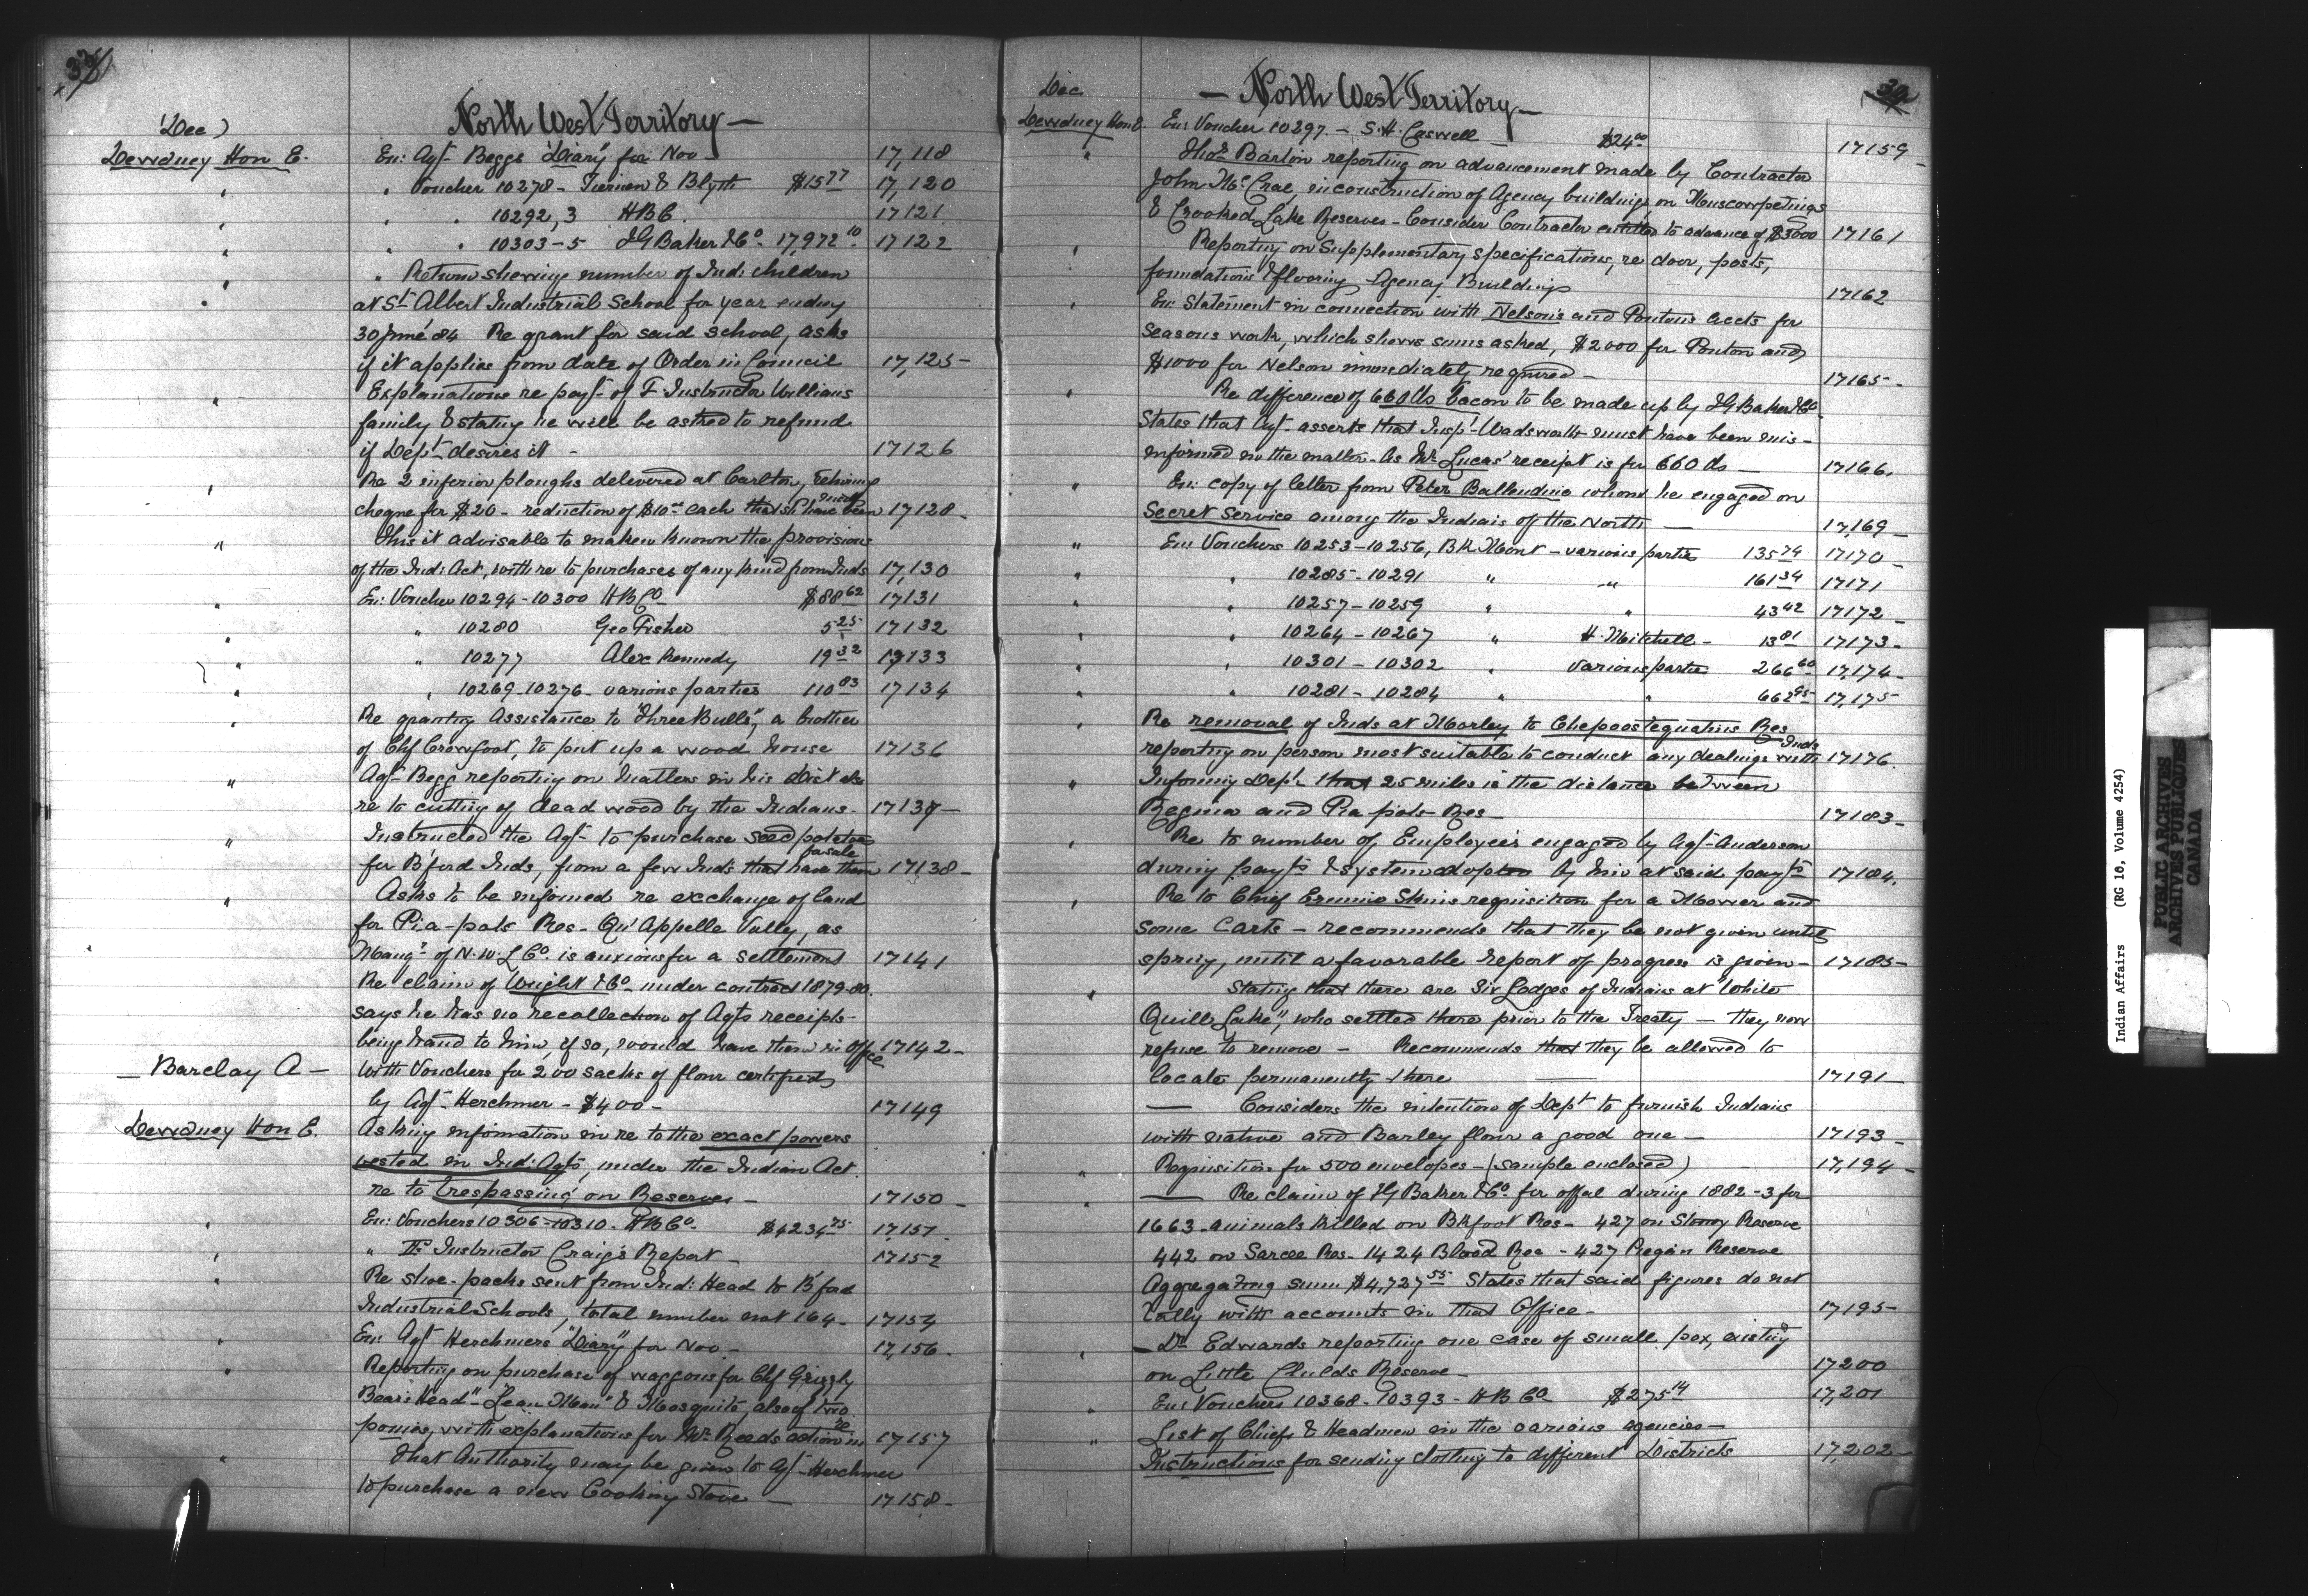 North West Territory —
(Dec)
Dewdney Hon E. En: Agt Beggs "Diary" for Nov 17,118
" " Voucher 10278 - Tiernen & Blyth $15 77 17,120
" " " 10292,3 HBC. 17121
" " " 10303-5 JG Baker & Co. 17,972 10 17122
" " Return showing number of Ind: children
at St Albert Industrial School for year ending
30 June '84 Re grant for said school, asks
if it applies from date of Order in Council 17,125 -
" Explanations re payt of F Instructor Williams
family & stating he will be asked to refund
if Dept desires it - 17126
" Re 2 inferior ploughs delivered at Carlton,
cheque for $20 - reduction of $10 00 each 17128 -
" Thks it advisable to make known the provisions
of the Ind: Act, with re to purchases of any kind from Inds 17,130
" En: Voucher 10294 - 10300 HBCo $88 62 17131
" " 10280 Geo Fisher 5 25 17132
" " 10277 Alex Kennedy 19 32 17133
" " 10269-10276 - various parties 110 83 17134
" Re granting Assistance to "Three Bulls", a brother
of Chf Crowfoot, to put up a wood house 17136
" Agt Begg reporting on matters in his Dist also
re to cutting of dead wood by the Indians - 17137 -
" Instructed the Agt to purchase seed potatoes
for sale
for B'ford Inds, from a few Inds that have them 17138 -
" Asks to be informed re exchange of land
for Pia-pots Res - Qu'Appelle Vally, as
Mangr of N.W.L Co. is anxious for a settlement 17141
Re claim of Wright & Co - under contract 1879-80.
says he has no recollection of Agts receipts -
being hand to him, if so, would have them in Office 17142 -
— Barclay A — With Vouchers for 200 sacks of flour certified
by Agt Herchmer - $400 - 17149
Dewdney Hon E. Asking infomation in re to the exact powers
vested in Ind: Agts, under the Indian Act
re to trespassing on Reserves - 17150 -
" En: Vouchers 10306 - 10310 - HBCo. $4234 75 17,151
" " Fm Instructor Craig's Report - 17152
" Re shoe-packs sent from Ind: Head to B'ford
Industrial Schools, total number not 164 - 17154
" En: Agt Herchmers "Diary" for Nov - 17,156 -
" Reporting on purchase of waggons for Chf Grizzly
Bears Head" - "Lean Man" & Mosquito, also of two
re
ponies, with explanations for Mr Reeds action in 17157
" That Authority may be given to Agt Herchmer
to purchase a new Cooking Stove — 17158 -
Dec — North West Territory —
Dewdney Hon E. En: Voucher 10297. - S.H. Caswell - $24 00 17159 -
" Thos Barton reporting on advancement made by Contractor
John McCrae, in construction of Agency buildings on Muscowpetungs
& Crooked Lake Reserves - Consider Contractor entitled to advance of $3000 17161
" Reporting on Supplementary specifications, re door, posts,
foundations & flooring, Agency Buildings 17162
" En: Statement in connection with Nelson's and Pontons accts for
Seasons work, which shows sums asked, $2000 for Ponton and
$1000 for Nelson immediately required - 17165 -
" Re difference of 660 lbs bacon to be made up by JG Baker & Co.
States that Agt asserts that Inspr Wadsworth must have been mis-
informed in the matter - As Mr Lucas' receipt is for 660 lbs — 17166.
" En: copy of letter from Peter Ballendine whom he engaged on
Secret Service among the Indians of the North — 17,169 -
" En: Vouchers 10253-10256, Bk Mont - various parties 135 74 17170 -
" " 10285-10291 " " 161 34 17171
" " 10257-10259 " " 43 42 17172 -
" " 10264-10267 " H. Mitchell - 13 81 17173 -
" " 10301-10302 " various parties 266 60 17,174 -
" " 10281-10284 " " 662 95 17,175
" Re removal of Inds at Morley to Chepoostequahns Res
Inds
reporting on person most suitable to conduct any dealings with 17176.
" Informing Dept that 25 miles is the distance between
Regina and Pia pots Res - 17183 -
" Re to number of Employees engaged by Agt Anderson
during payts & system adopted by him at said payts 17184.
" Re to Chief Ermine Skins requisition for a Mower and
some Carts - recommends that they be not given until
spring, until a favorable report of progress is given - 17185 -
" Stating that there are Six Lodges of Indians at "White
Quill Lake", who settled there prior to the Treaty - they now
refuse to remove - Recommends that they be allowed to
locate permanently there — 17191 -
— Considers the intention of Dept to furnish Indians
with native and Barley flour a good one - 17193 -
" Requisition for 500 envelopes - (sample enclosed) 17,194 -
— Re claim of JG Baker & Co. for offal during 1882-3 for
1663 animals killed on Bkfoot Res - 427 on Stoney Reserve
442 on Sarcee Res - 1424 Blood Res - 427 Piegan Reserve
Aggregating sum $4,727 55 States that said figures do not
tally with accounts in that Office - 17195 -
" - Dr Edwards reporting one case of small pox, existing
on Little Childs Reserve - 17200
" En: Vouchers 10368 - 10393 - HBCo $275 14 17,201
" List of Chiefs & Headmen in the various agencies -
Instructions for sending clothing to different Districts 17,202 -
Indian Affairs (RG 10, Volume 4254)
PUBLIC ARCHIVES
ARCHIVES PUBLIQUES
CANADA